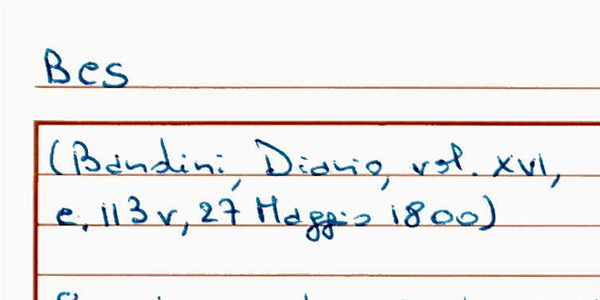 Bes
(Bandini, Diario, vol. XVI,
c. 113 v, 27 Maggio 1800)